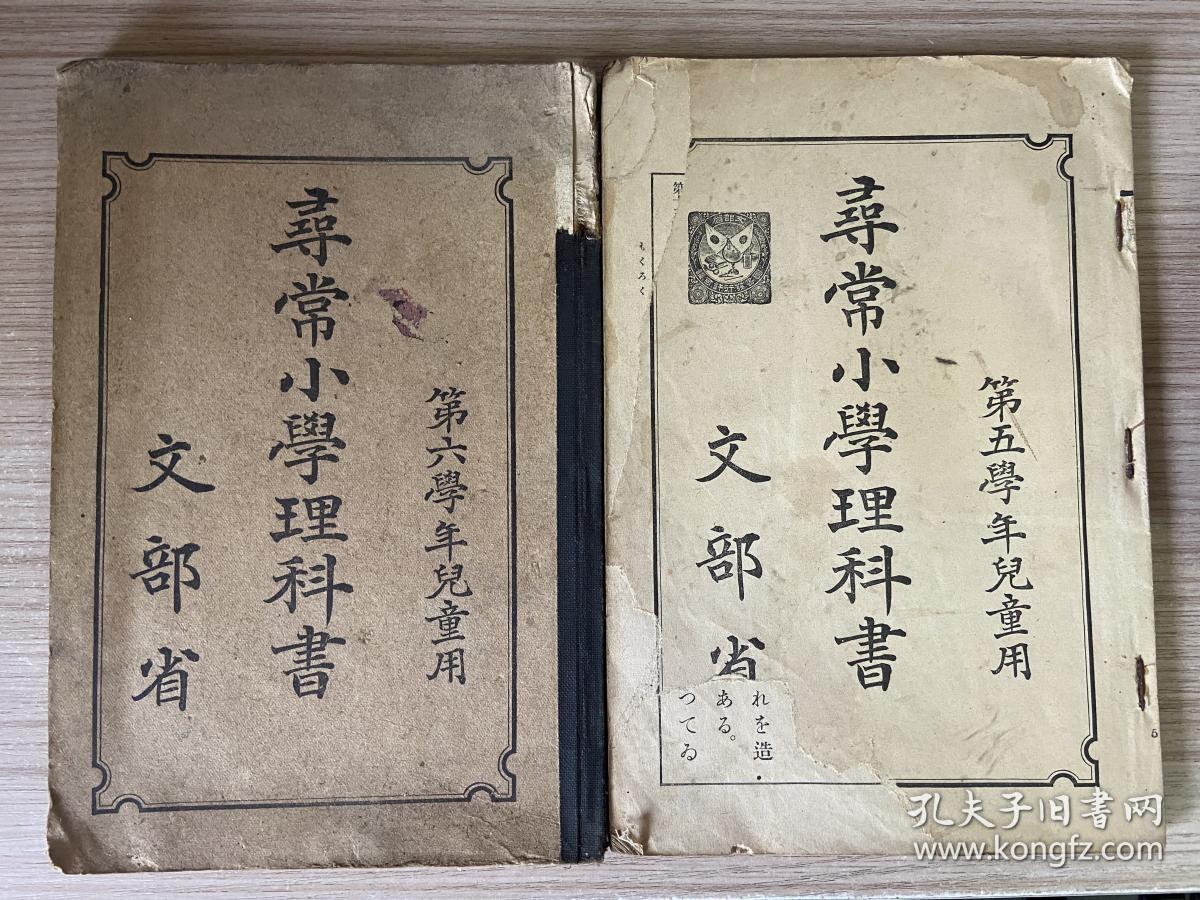 尋常小學理科書
第六學年兒童用
文部省
尋常小學理科書
第五學年兒童用
文部省
第
もくろく
れを造
ある。
つてゐ
5
孔夫子旧书网
www.kongfz.com